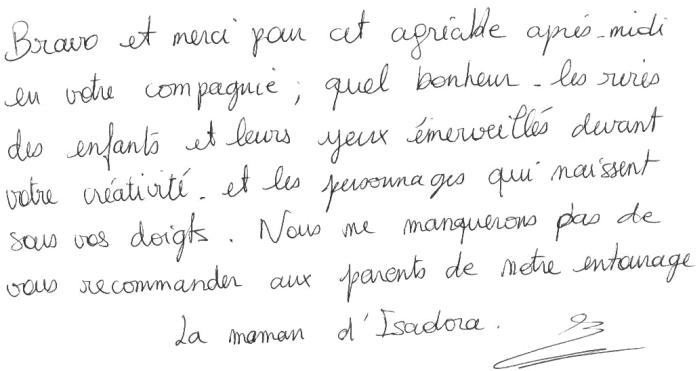 Bravo et merci pour cet agréable après-midi
en votre compagnie ; quel bonheur - les rires
des enfants et leurs yeux émerveillés devant
votre créativité - et les personnages qui naissent
sous vos doigts. Nous ne manquerons pas de
vous recommander aux parents de notre entourage
La maman d'Isadora.